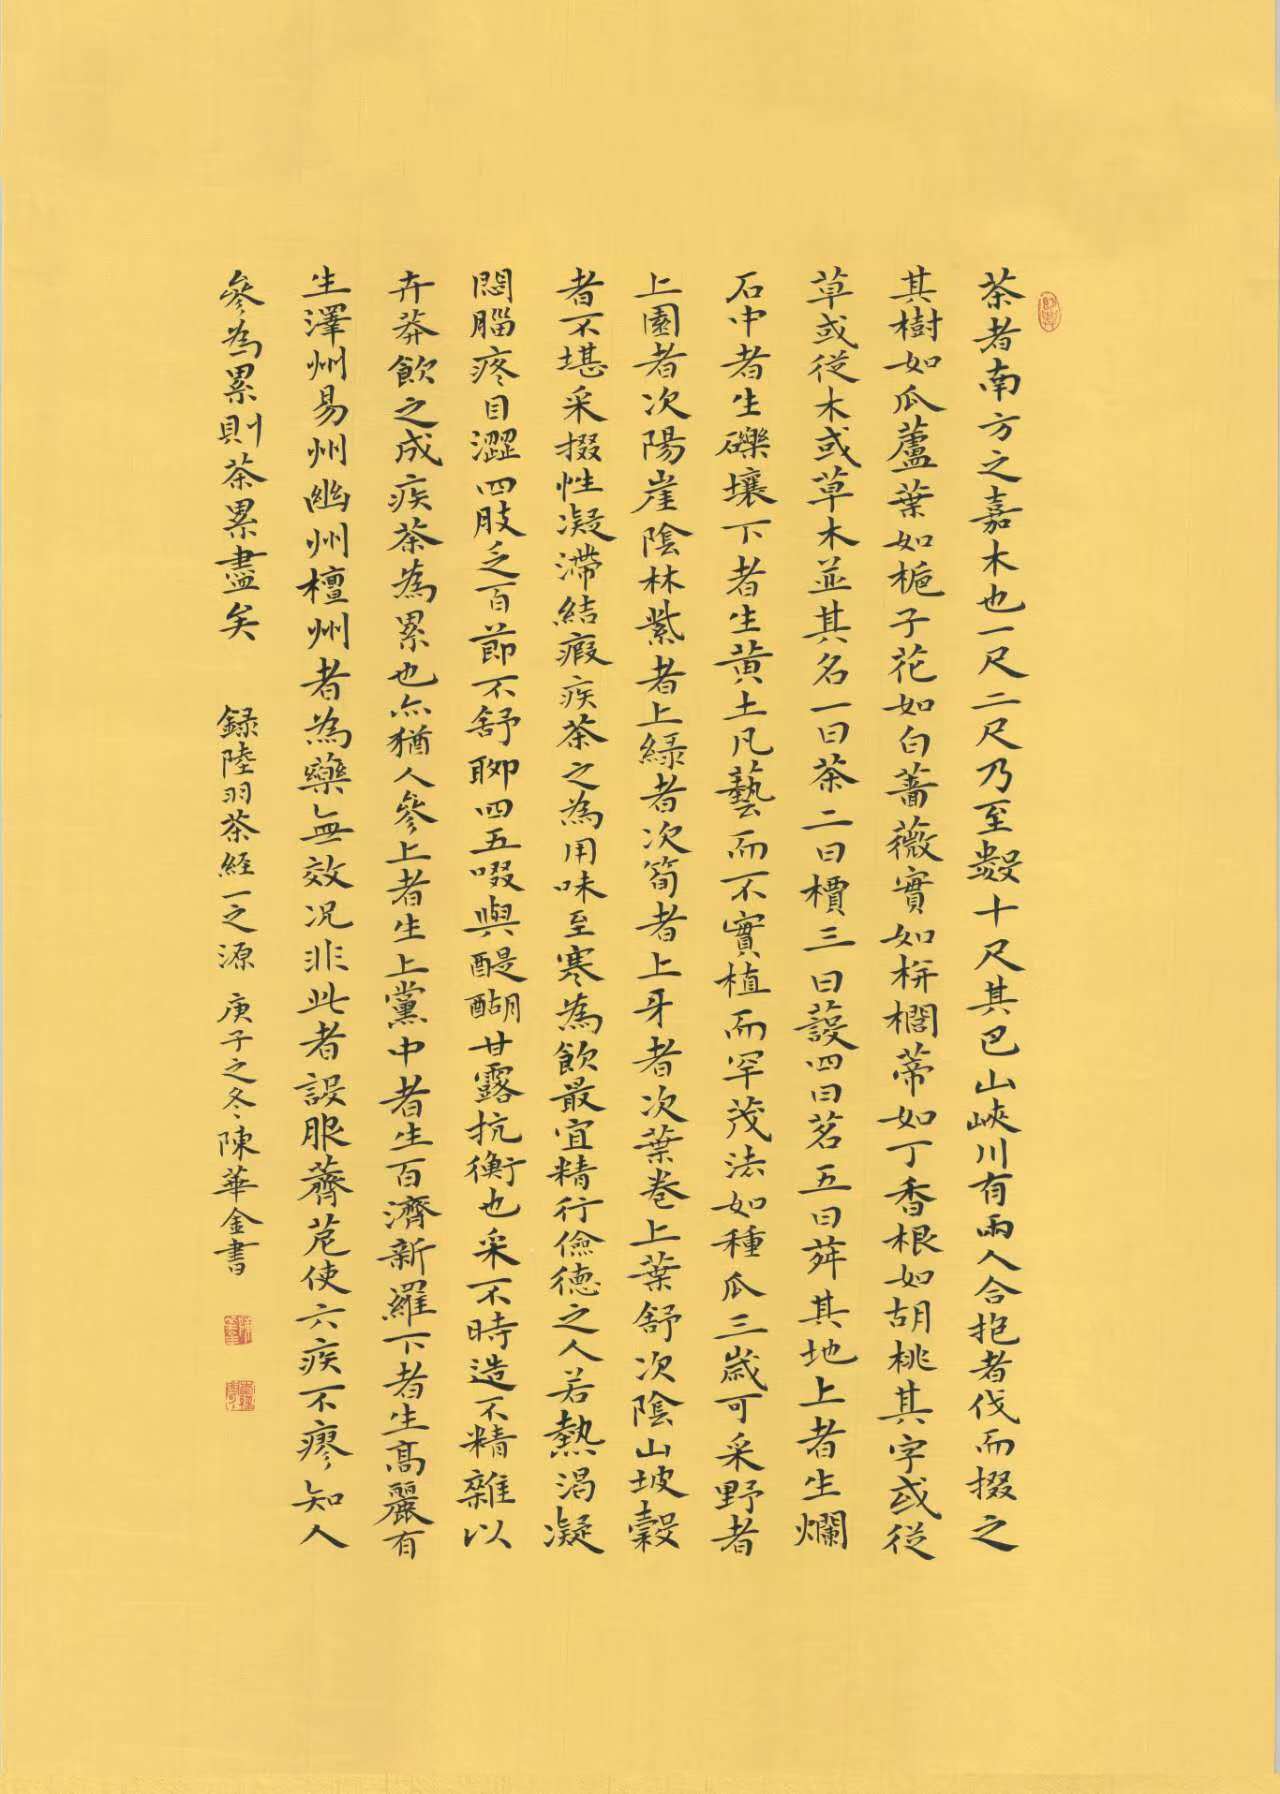 茶者南方之嘉木也一尺二尺乃至數十尺其巴山峽川有兩人合抱者伐而掇之
其樹如瓜蘆葉如梔子花如白薔薇實如栟櫚蒂如丁香根如胡桃其字或從
草或從木或草木並其名一曰茶二曰檟三曰蔎四曰茗五曰荈其地上者生爛
石中者生礫壤下者生黃土凡藝而不實植而罕茂法如種瓜三歲可采野者
上園者次陽崖陰林紫者上綠者次筍者上牙者次葉卷上葉舒次陰山坡穀
者不堪采掇性凝滯結瘕疾茶之為用味至寒為飲最宜精行儉德之人若熱渴凝
悶腦疼目澀四肢乏百節不舒聊四五啜與醍醐甘露抗衡也采不時造不精雜以
卉莽飲之成疾茶為累也亦猶人參上者生上黨中者生百濟新羅下者生高麗有
生澤州易州幽州檀州者為藥無效況非此者設服薺苨使六疾不瘳知人
參為累則茶累盡矣 錄陸羽茶經一之源 庚子之冬陳華金書